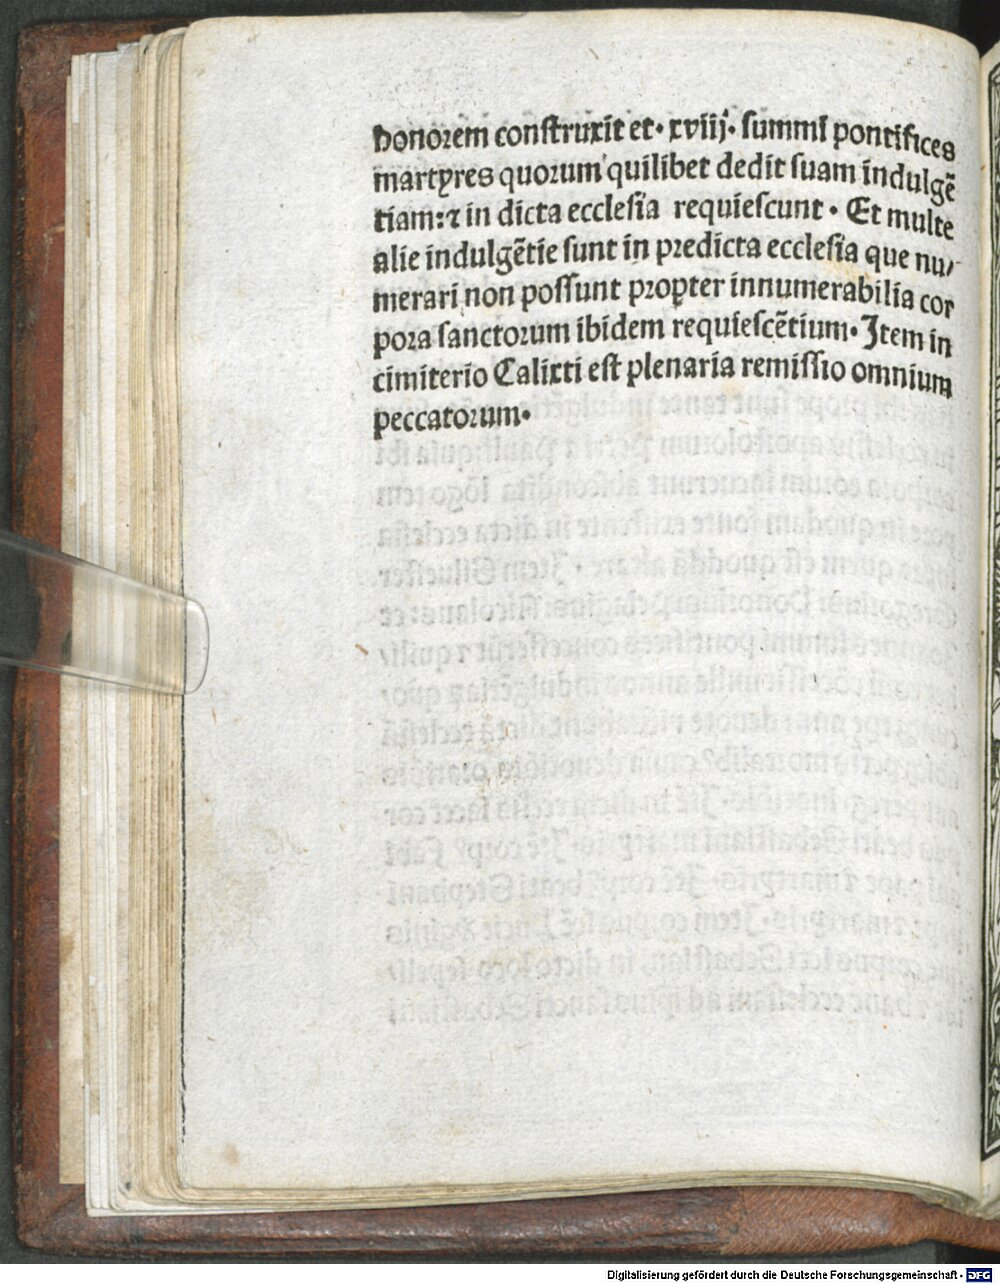 honorem construxit et· xviij· summi pontifices
martyres quorum quilibet dedit suam indulgē
tiam:⁊ in dicta ecclesia requiescunt· Et multe
alie indulgētie sunt in predicta ecclesia que nu/
merari non possunt propter innumerabilia cor
pora sanctorum ibidem requiescētium· Item in
cimiterio Calixti est plenaria remissio omnium
peccatorum·
Digitalisierung gefördert durch die Deutsche Forschungsgemeinschaft - DFG